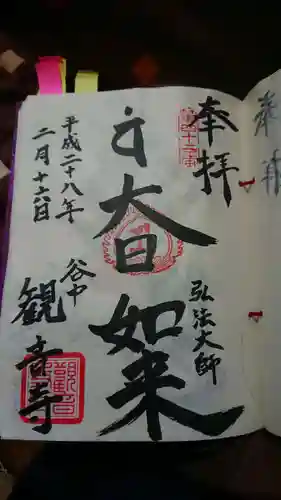 奉拝
弘法大師
大日如来
平成二十八年
二月十六日
谷中
観音寺